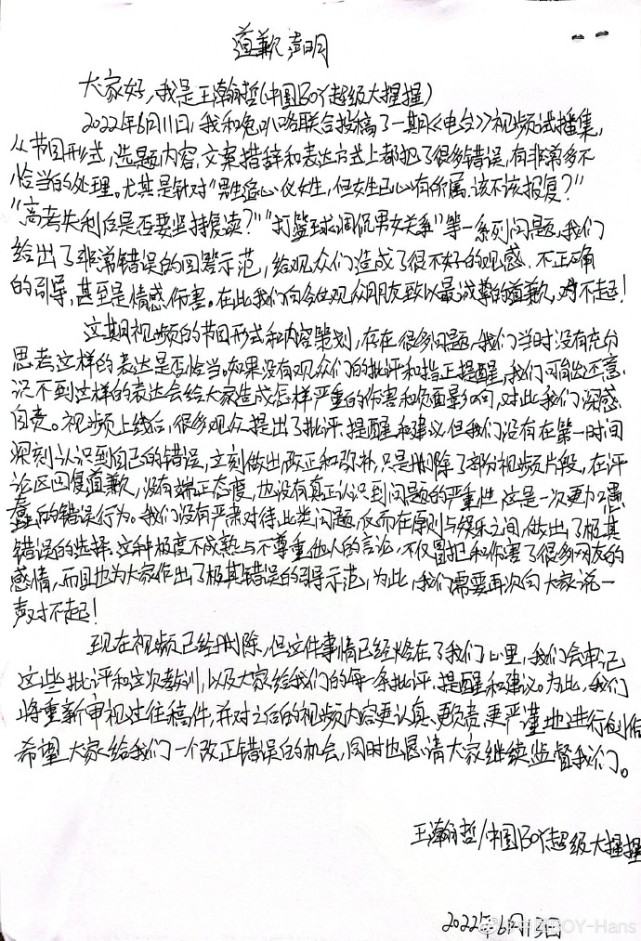 道歉声明
大家好,我是王瀚哲(中国BOY超级大猩猩)
2022年6月11日,我和兔叭咯联合投稿了一期《电台》视频试播集,
从节目形式,选题内容,文案措辞和表达方式上都犯了很多错误,有非常多不
恰当的处理。尤其是针对“男生追心仪女生,但女生已心有所属,该不该报复?”
“高考失利后是否要坚持复读?”“打篮球调侃男女关系”等一系列问题,我们
给出了非常错误的回答示范,给观众们造成了很不好的观感、不正确
的引导,甚至是情感伤害。在此我们向各位观众朋友致以最诚挚的道歉,对不起!
这期视频的节目形式和内容策划,存在很多问题,我们当时没有充分
思考这样的表达是否恰当。如果没有观众们的批评和指正提醒,我们可能还意
识不到这样的表达会给大家造成怎样严重的伤害和负面影响,对此我们深感
自责。视频上线后,很多观众提出了批评、提醒和建议,但我们没有在第一时间
深刻认识到自己的错误,立刻做出改正和弥补,只是删除了部分视频片段,在评
论区回复道歉,没有端正态度,也没有真正认识到问题的严重性,这是一次更加愚
蠢的错误行为。我们没有严肃对待此类问题,反而在原则与娱乐之间,做出了极其
错误的选择,这种极度不成熟与不尊重他人的言论,不仅冒犯和伤害了很多网友的
感情,而且也为大家作出了极其错误的引导示范,为此,我们需要再次向大家说一
声对不起!
现在视频已经删除,但这件事情已经烙在了我们心里,我们会牢记
这些批评和这次教训,以及大家给我们的每一条批评、提醒和建议。为此,我们
将重新审视过往稿件,并对之后的视频内容更认真、更负责、更严谨地进行创作
希望大家给我们一个改正错误的机会,同时也恳请大家继续监督我们。
王瀚哲/中国BOY超级大猩猩
2022年6月12日